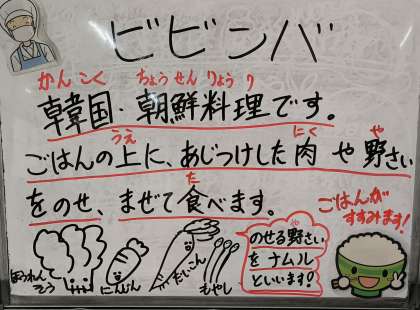 ビビンバ
かんこく ちょうせんりょうり
韓国・朝鮮料理です。
うえ にく や
ごはんの上に、あじつけした肉や野さい
た
をのせ、まぜて食べます。
ごはんが
すすみます!
ほうれんそう
にんじん
だいこん
もやし
や
のせる野さい
をナムル
といいます!